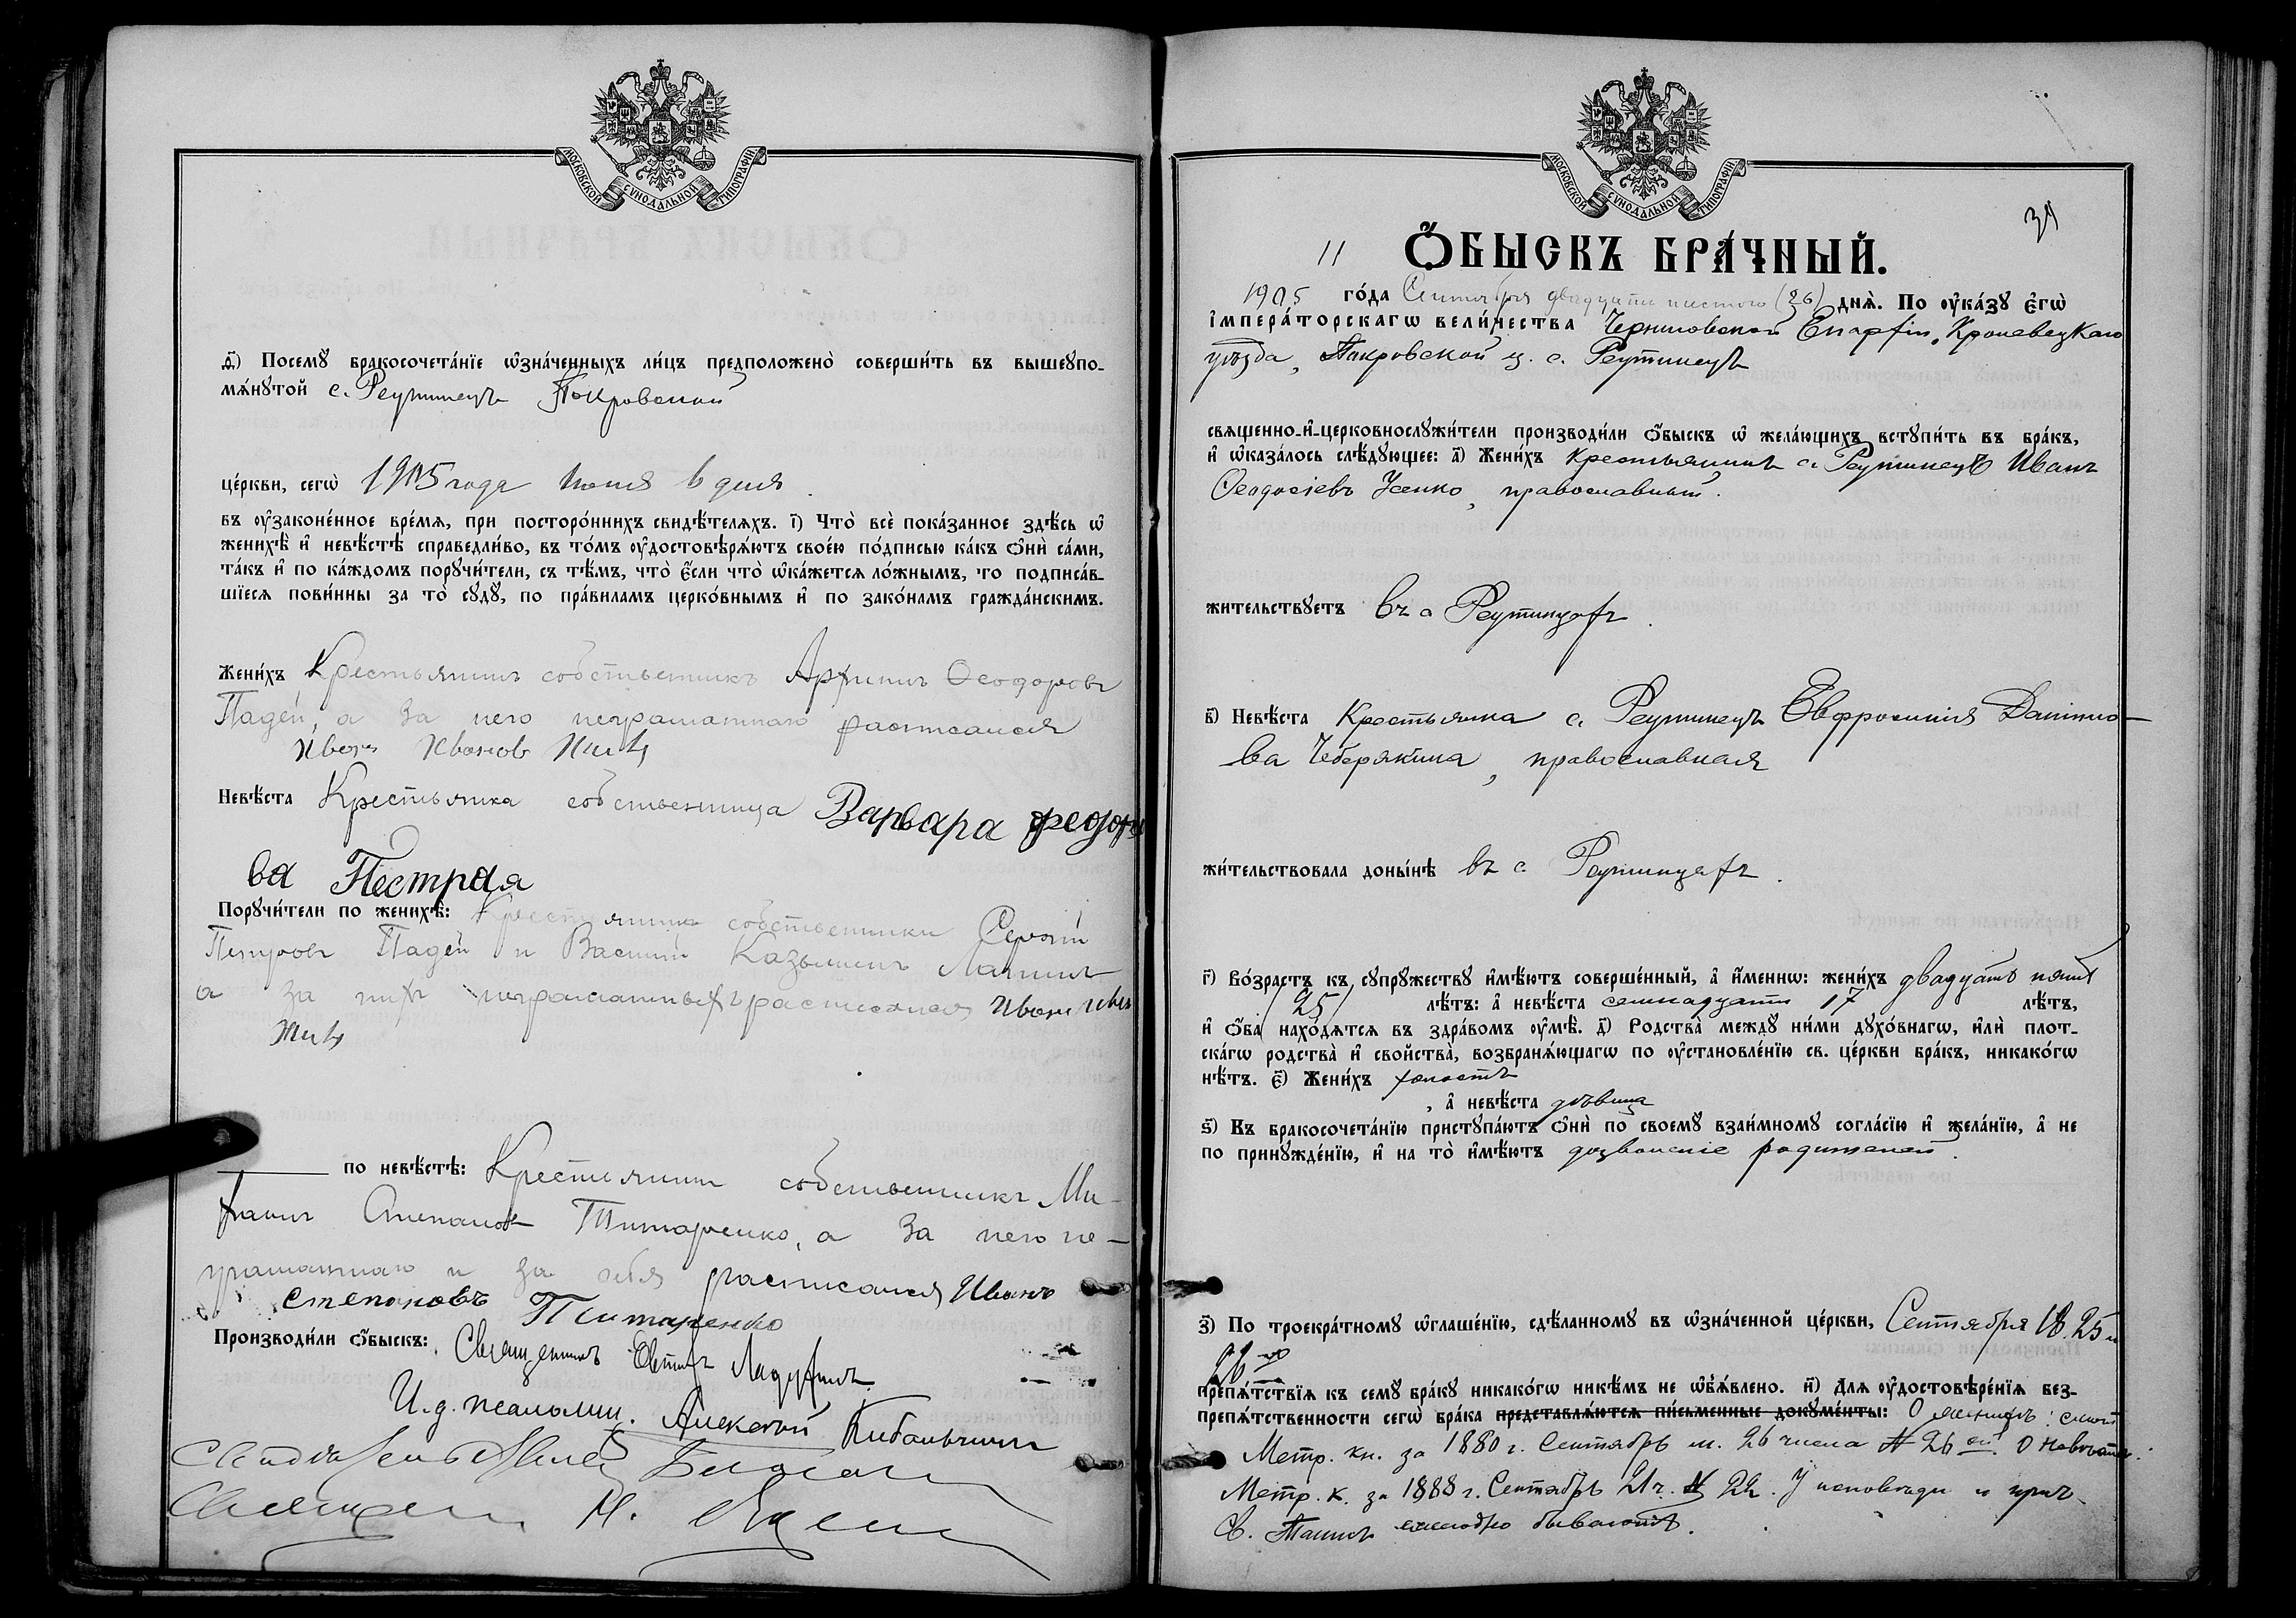 МОСКОВСКОЙ СѴНОДАЛЬНОЙ ТИПОГРАФІИ
д҃і) Посемꙋ бракосочета́нїе ѡ҆зна́ченныхъ ли́цъ предположено̀ соверши́ть въ вышеꙋпо-
мѧ́нꙋтой с. Реутинецъ Покровской
це́ркви, сегѡ̀ 1905 года Июня 6 дня
въ ᲂу҆законе́нное вре́мѧ, при посторо́ннихъ свидѣ́телѧхъ. і҃) Что̀ всѐ пока́занное здѣ́сь ѡ҆
женихѣ̀ и҆ невѣ́стѣ справедли́во, въ то́мъ ᲂу҆достовѣрѧ́ютъ свое́ю по́дписью ка́къ ѻ҆нѝ са́ми,
та́къ и҆ по ка́ждомъ порꙋчи́тели, съ тѣ́мъ, что̀ є҆́сли что̀ ѡ҆ка́жетсѧ ло́жнымъ, то подписа́в-
шїесѧ пови́нны за то̀ сꙋдꙋ̀, по пра́виламъ церко́внымъ и҆ по зако́намъ гражда́нскимъ.
Жени́хъ Крестьянинъ собственникъ Архипъ Ѳеодоровъ
Падей, а за него неграмотнаго расписался
Иванъ Иванов
Невѣ́ста Крестьянка собственница Варвара Феодоро
ва Пестрая
Порꙋчи́тели по женихѣ̀: Крестьяние собственники Сергѣй
Петровъ Падей и Василій Казьминъ
а за нихъ неграмотныхъ расписался Иванъ
по невѣ́стѣ: Крестьянинъ собственникъ Ми-
трофанъ Степановъ Титаренко, а за него не-
грамотнаго и за себя расписался Иванъ
Степановъ Титаренко
Производи́ли ѻ҆́быскъ: Священникъ Евтихій
И. д. псаломщ. Алексѣй Кибальчичъ
МОСКОВСКОЙ СѴНОДАЛЬНОЙ ТИПОГРАФІИ
39
11 Ѻ҆́БЫСКЪ БРА́ЧНЫЙ.
1905 го́да Сентября двадцать шестого (26) днѧ̀. По ᲂу҆ка́зꙋ є҆гѡ̀
і҆мпера́торскагѡ вели́чества Черниговской Епархіи, Кролевецкаго
уѣзда, Покровской ц. с. Реутинецъ
свѧщенно-и҆-церковнослꙋжи́тели производи́ли ѻ҆́быскъ ѡ҆ жела́ющихъ встꙋпи́ть въ бра́къ,
и҆ ѡ҆каза́лось слѣ́дꙋющее: а҃) Жени́хъ Крестьянинъ с. Реутинецъ Иванъ
Ѳеодосіевъ Усенко, православный.
жи́тельствꙋетъ въ с Реутинцахъ.
в҃) Невѣ́ста Крестьянка с. Реутинецъ Евфросинія Данило-
ва Чеберякина, православная
жи́тельствовала доны́нѣ въ с. Реутинцахъ.
г҃) Во́зрастъ къ сꙋпрꙋ́жествꙋ и҆мѣ́ютъ соверше́нный, а҆ и҆́меннѡ: жени́хъ двадцать пять
(25) лѣ́тъ: а҆ невѣ́ста семнадцать 17 лѣ́тъ,
и҆ ѻ҆́ба нахо́дѧтсѧ въ здра́вомъ ᲂу҆мѣ̀. д҃) Родства̀ междꙋ̀ ни́ми дꙋхо́внагѡ, и҆лѝ плот-
ска́гѡ родства̀ и҆ сво́йства̀, возбранѧ́ющагѡ по ᲂу҆становле́нїю св. це́ркви бра́къ, никако́гѡ
нѣ́тъ. є҃) Жени́хъ холостъ
, а҆ невѣ́ста дѣвица
ѕ҃) Къ бракосочета́нїю пристꙋпа́ютъ ѻ҆нѝ по своемꙋ̀ взаи́мномꙋ согла́сїю и҆ жела́нїю, а҆ не
по принꙋжде́нїю, и҆ на то̀ и҆мѣ́ютъ дозволеніе родителей.
з҃) По троекра́тномꙋ ѡ҆глаше́нїю, сдѣ́ланномꙋ въ ѡ҆зна́ченной це́ркви, Сентября 18. 25 и
26 го
препѧ́тствїѧ къ семꙋ̀ бра́кꙋ никако́гѡ никѣ́мъ не ѡ҆бъѧ́влено. и҃) Длѧ ᲂу҆достовѣре́нїѧ без-
препѧ́тственности сегѡ̀ бра́ка представлѧ́ютсѧ пи́сьменные докꙋме́нты: О женихѣ:
Метр. кн. за 1880 г. Сентябрь м. 26 числа № 26 ой. О невѣстѣ:
Метр. к. за 1888 г. Сентябрь 21 ч. № 22. У исповѣди и прич.
Св. Таинъ ежегодно бываютъ.